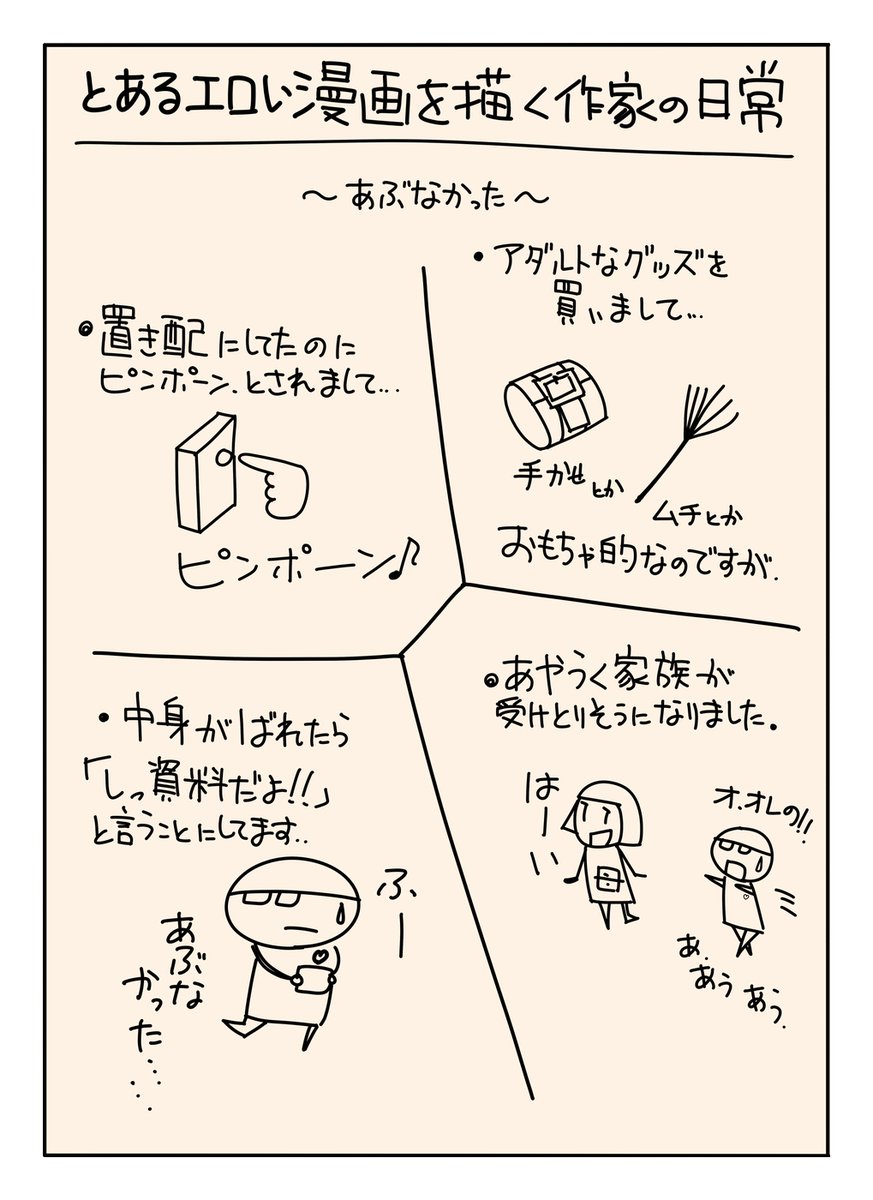 とあるエロい漫画を描く作家の日常
～あぶなかった～
・アダルトなグッズを
買いまして...
手かせとか
ムチとか
おもちゃ的なのですが.
・置き配にしてたのに
ピンポーン.とされまして...
ピンポーン♪
・あやうく家族が
受けとりそうになりました。
はーい
オ.オレの!!
あ.
あう
あう.
・中身がばれたら
「しっ資料だよ!!」
と言うことにしてます..
ふー
あぶな
かった……